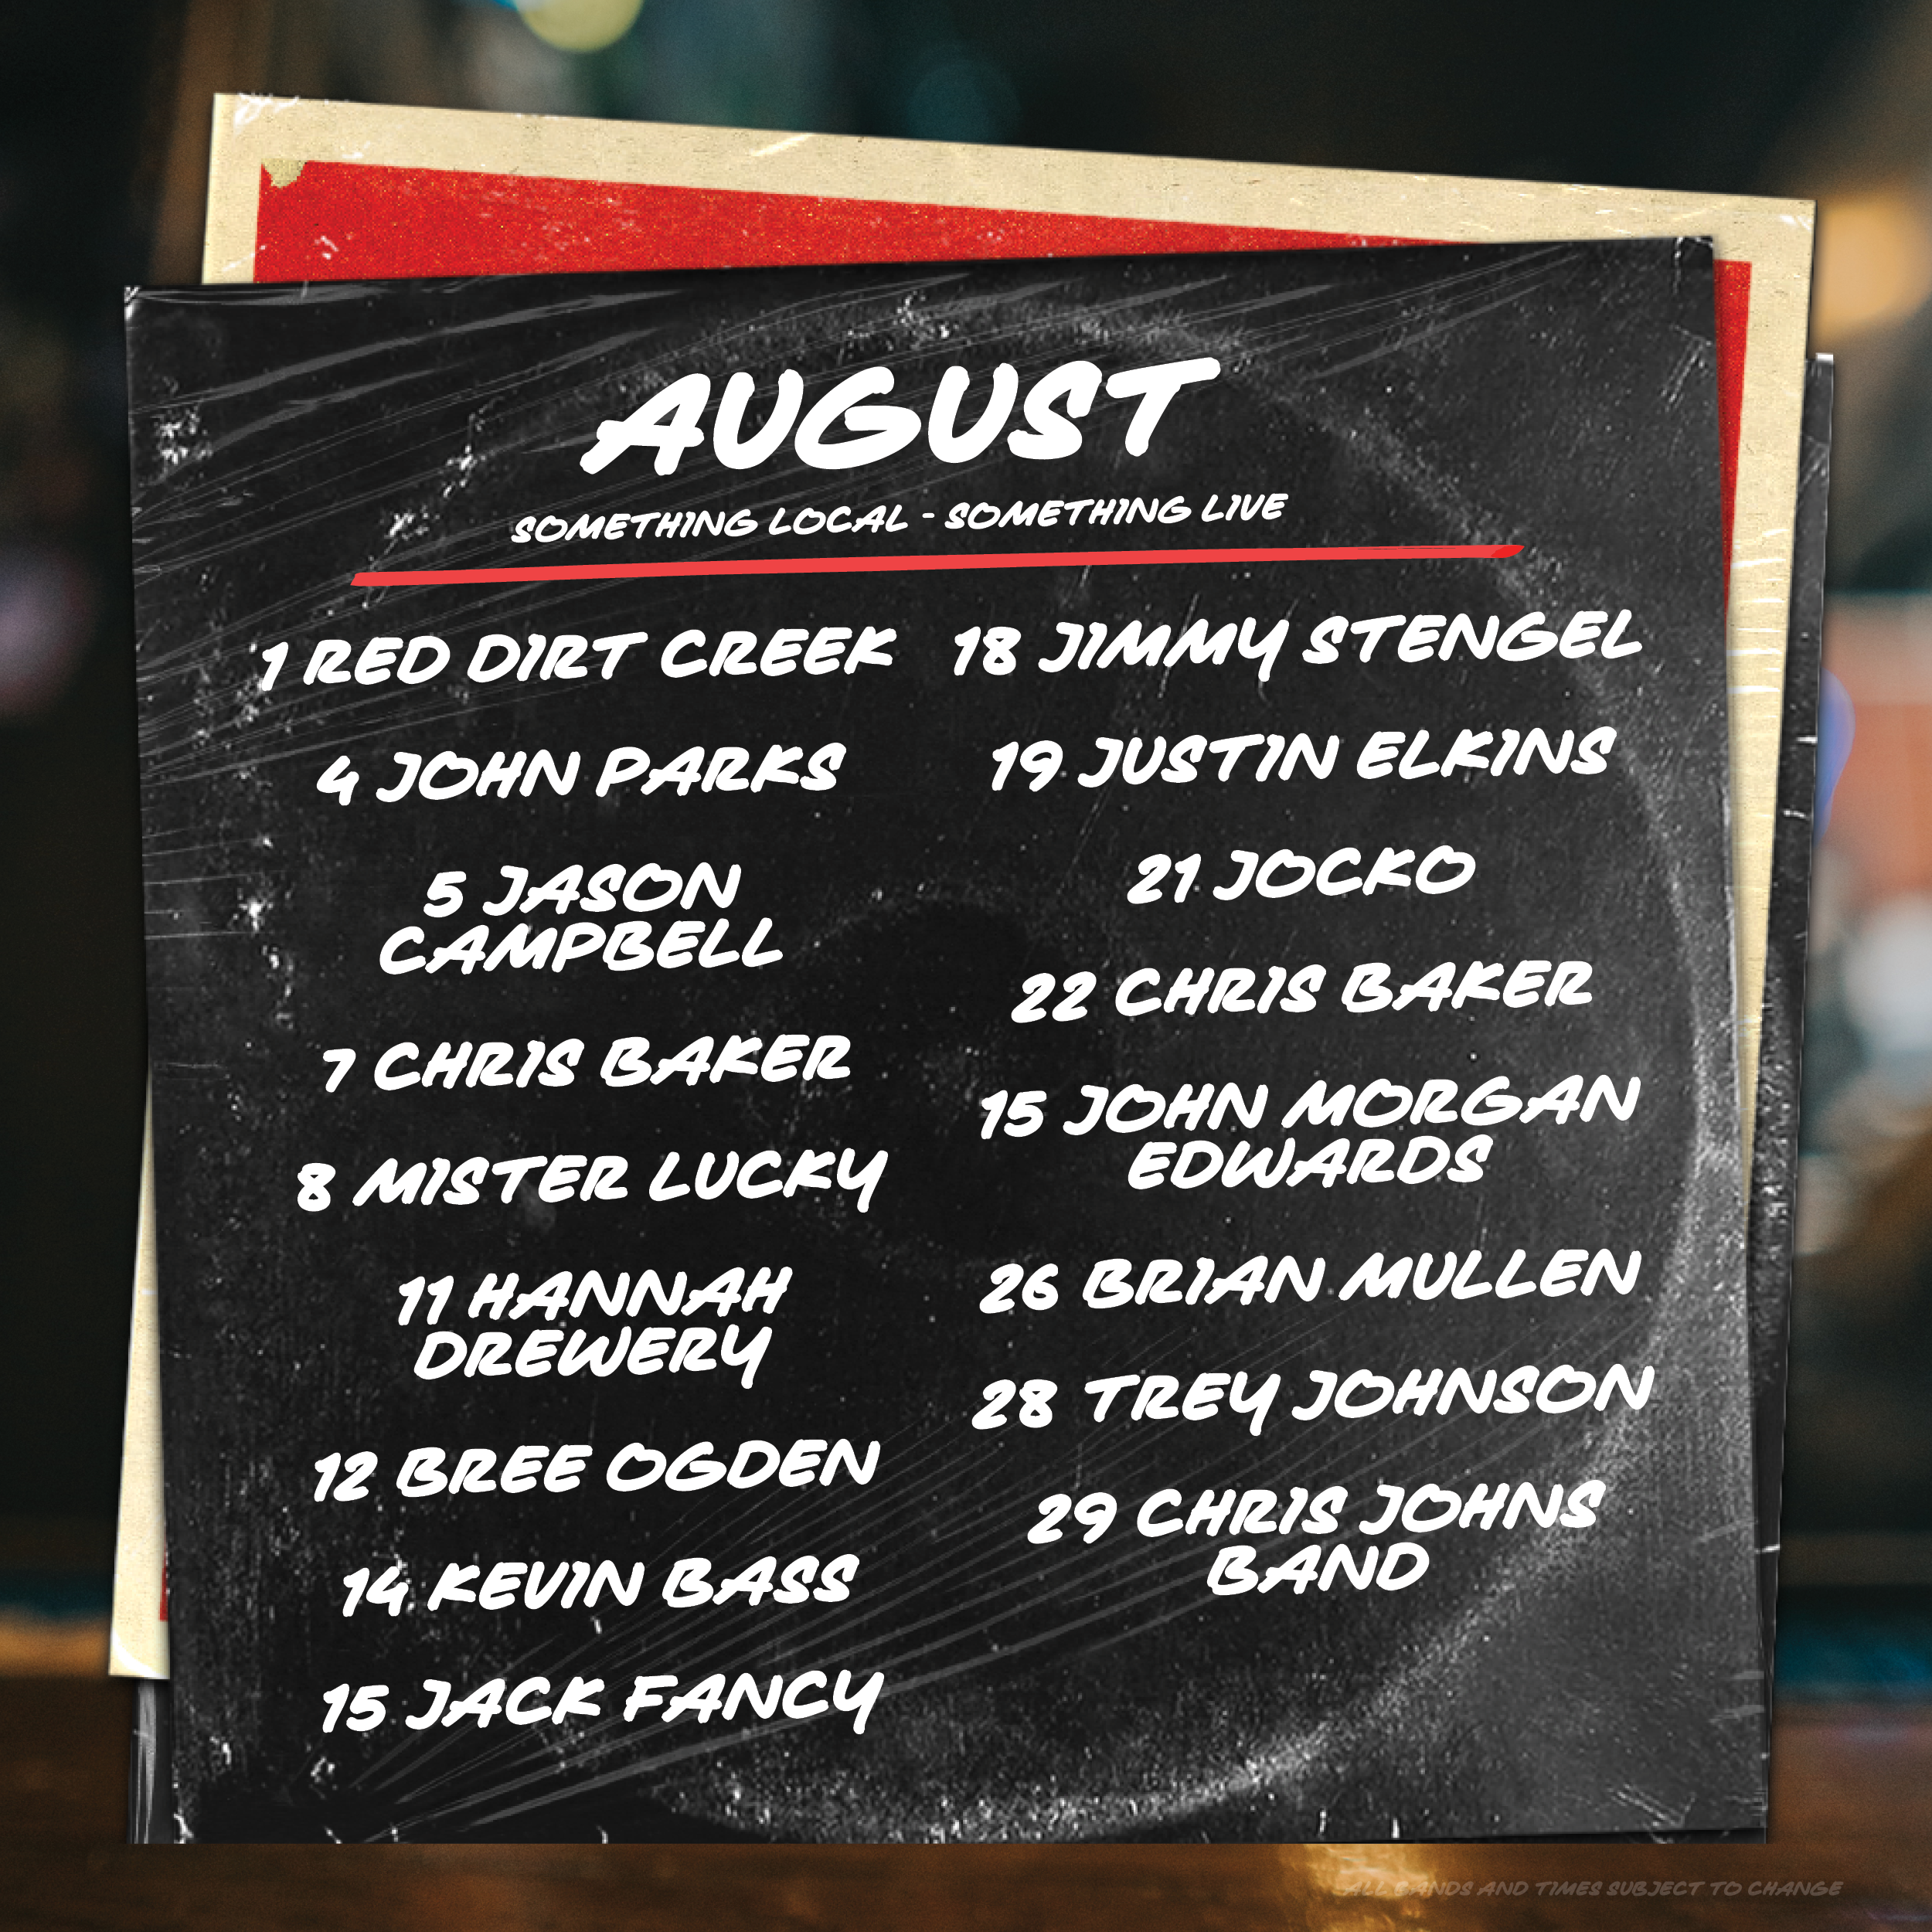 AUGUST
SOMETHING LOCAL - SOMETHING LIVE
1 RED DIRT CREEK
4 JOHN PARKS
5 JASON
CAMPBELL
7 CHRIS BAKER
8 MISTER LUCKY
11 HANNAH
DREWERY
12 BREE OGDEN
14 KEVIN BASS
15 JACK FANCY
18 JIMMY STENGEL
19 JUSTIN ELKINS
21 JOCKO
22 CHRIS BAKER
15 JOHN MORGAN
EDWARDS
26 BRIAN MULLEN
28 TREY JOHNSON
29 CHRIS JOHNS
BAND
ALL BANDS AND TIMES SUBJECT TO CHANGE